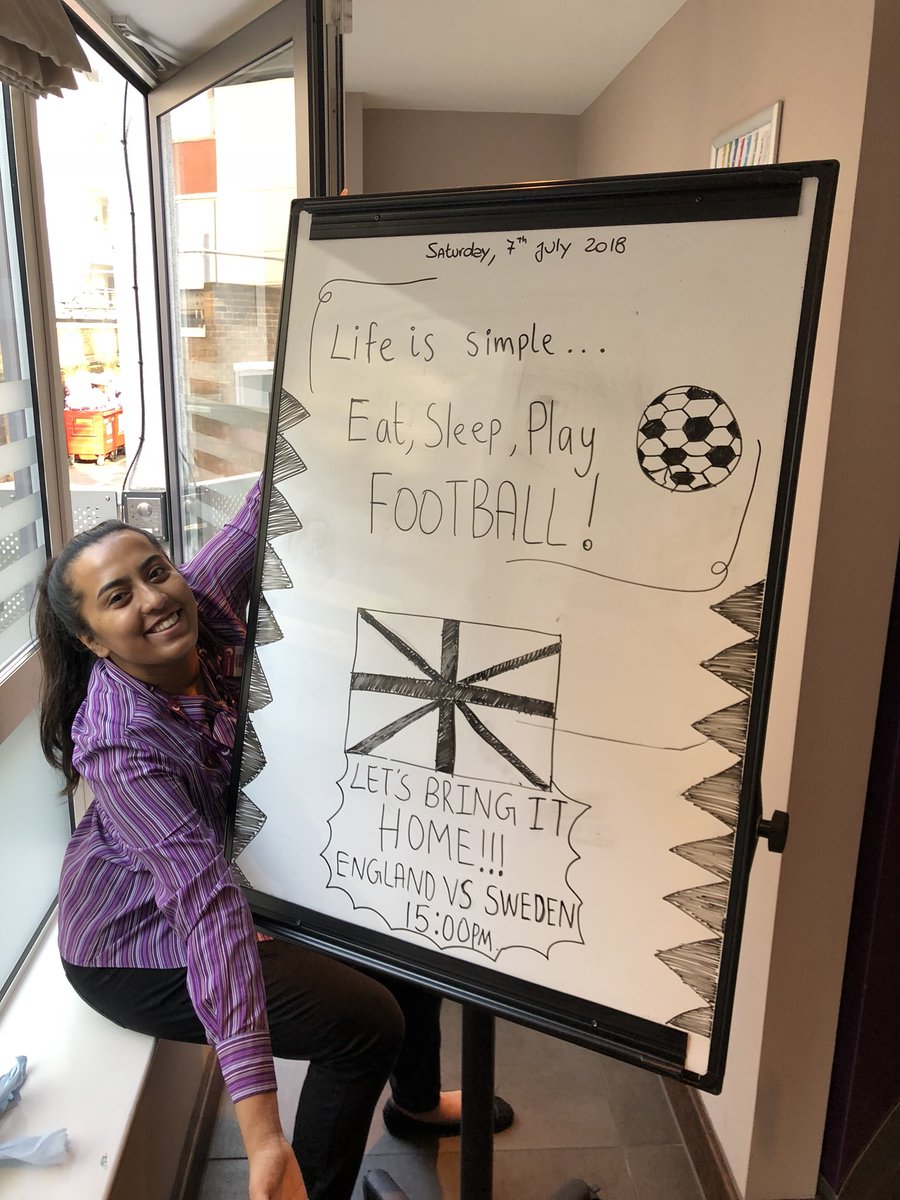 Saturday, 7th July 2018
Life is simple...
Eat, Sleep, Play
FOOTBALL!
LET'S BRING IT
HOME!!!
ENGLAND VS SWEDEN
15:00PM